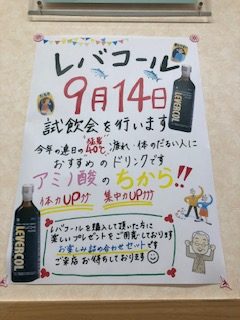 レバコール
9月14日
試飲会を行います
今年の連日の猛暑40℃で疲れ・体のだるい人に
おすすめのドリンクです
アミノ酸のちから!!
体力UP 集中力UP
レバコールを購入して頂いた方に
楽しいプレゼントをご用意しております
お楽しみ詰め合わせセットです
ご来店お待ちしております
LEVERCOL
LEVERCOL